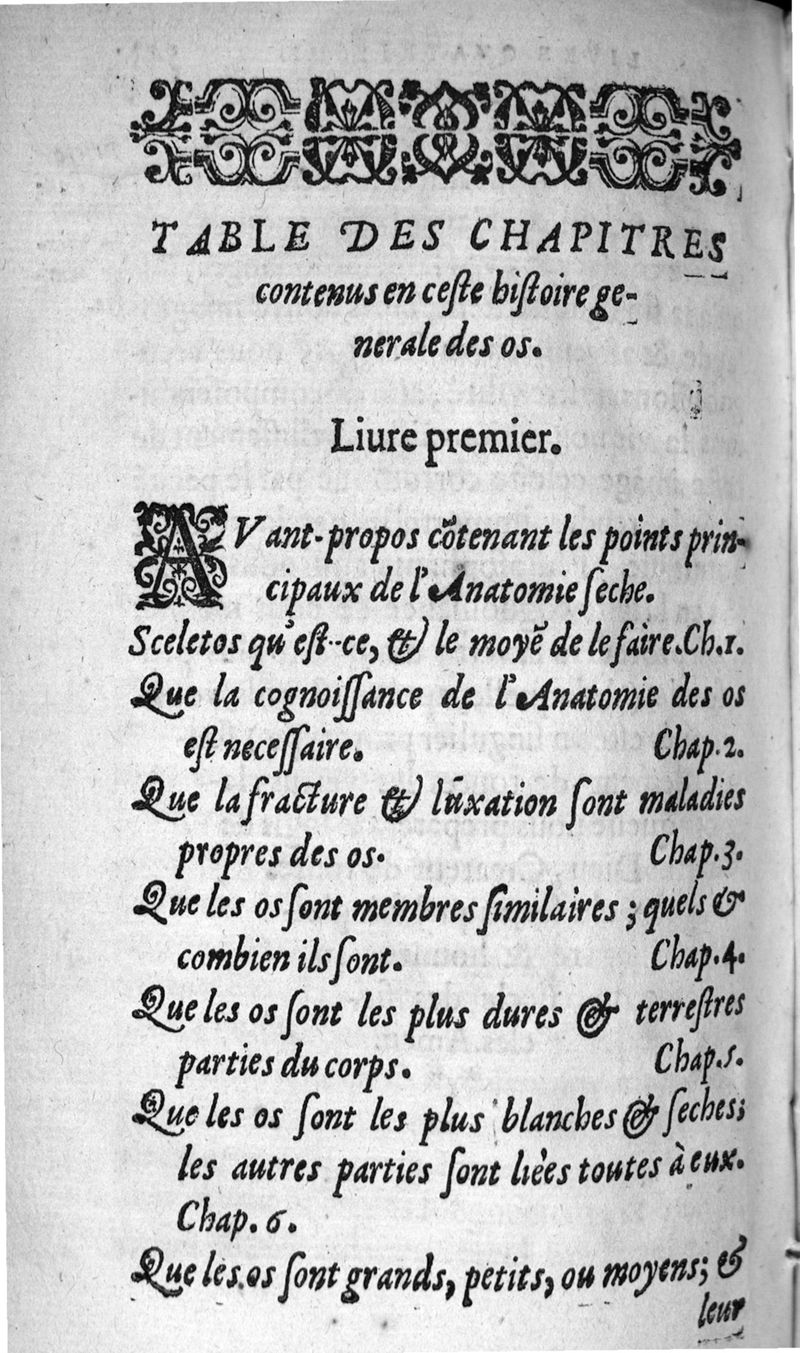 TABLE DES CHAPITRES
contenus en ceſte hiſtoire ge-
nerale des os.
Liure premier.
AVant-propos cõtenant les points prin-
cipaux de l'Anatomie ſeche.
Sceletos qu'eſt-ce, & le moyẽ de le faire.Ch.1.
Que la cognoiſſance de l'Anatomie des os
eſt neceſſaire. Chap.2.
Que la fracture & luxation ſont maladies
propres des os. Chap.3.
Que les os ſont membres ſimilaires ; quels &
combien ils ſont. Chap.4.
Que les os ſont les plus dures & terreſtres
parties du corps. Chap.5.
Que les os ſont les plus blanches & ſeches;
les autres parties ſont liées toutes à eux.
Chap. 6.
Que les os ſont grands, petits, ou moyens; &
leur